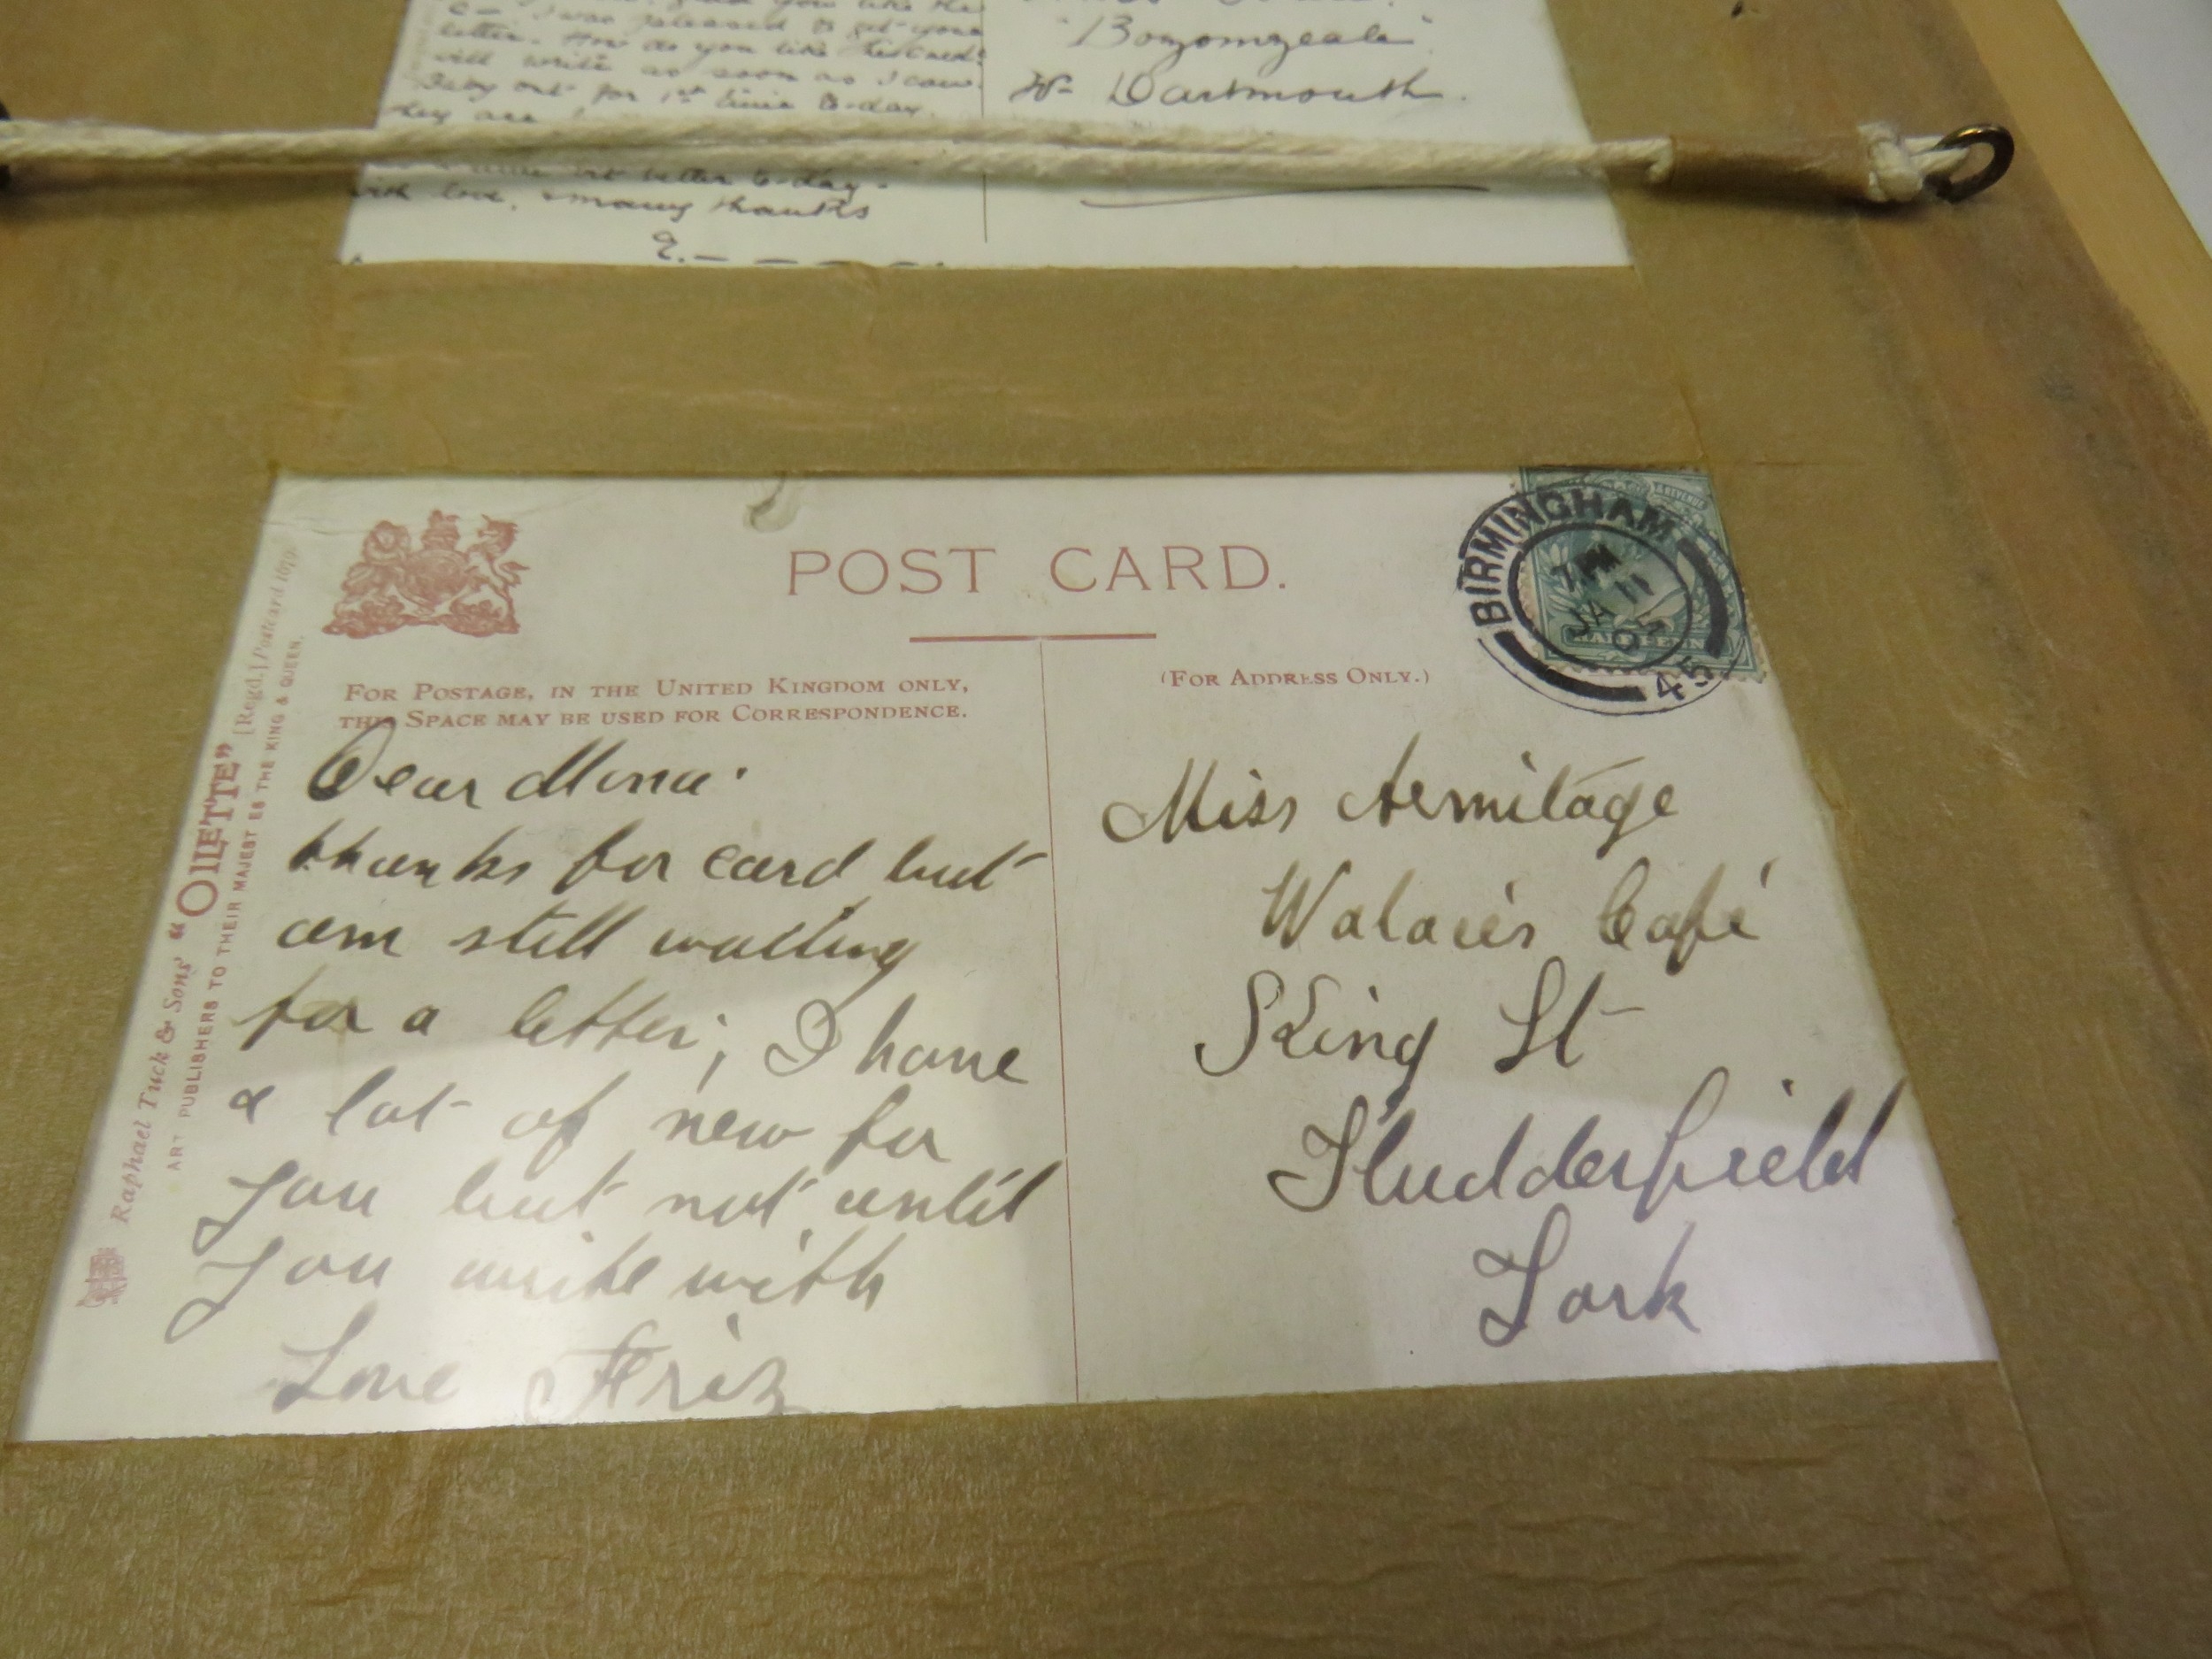 like the
I was pleased to get your
letter. How do you like this card?
will write as soon as I can.
Baby out for 1st time to-day.
they are
better to-day.
with love, & many thanks
E.
Dartmouth.
POST CARD.
FOR POSTAGE, IN THE UNITED KINGDOM ONLY,
THIS SPACE MAY BE USED FOR CORRESPONDENCE.
(FOR ADDRESS ONLY.)
BIRMINGHAM
7 PM
JA 11
45
HALFPENNY
Raphael Tuck & Sons' "OILETTE" [Regd.] Postcard
ART PUBLISHERS TO THEIR MAJESTIES THE KING & QUEEN.
Dear Mona
thanks for card but
am still waiting
for a letter; I have
a lot of new for
you but not until
you write with
Love
Miss Armitage
Café
King St
Hudderfield
York